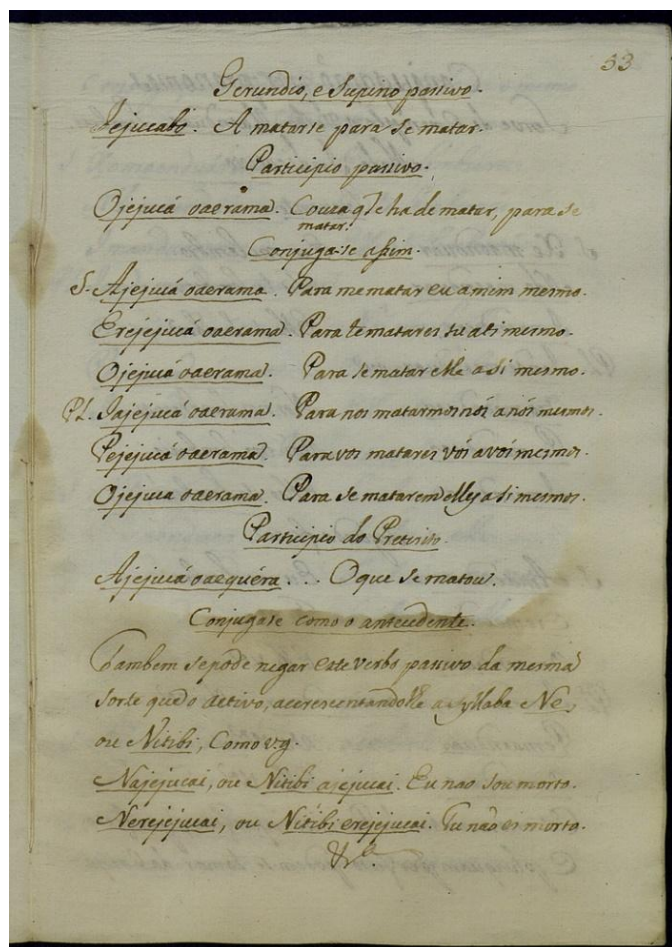 33
Gerundio, e Supino passivo.
Jejucabo. A matarse para se matar.
Participio passivo.
Ojejucá oaerama. Couza q̃ se ha de matar, para se
matar.
Conjuga-se assim.
S. Ajejucá oaerama. Para me matar eu a mim mesmo.
Erejejucá oaerama. Para te matares tu a ti mesmo.
Ojejucá oaerama. Para se matar elle a si mesmo.
Pl. Jajejucá oaerama. Para nos matarmos nós a nós mesmos.
Pejejucá oaerama. Para vos matares vós a vós mesmos.
Ojejuca oaerama. Para se matarem elles a si mesmos.
Participio do Preterito.
Ajejucá oaequéra... O que se matou.
Conjugase como o antecedente.
Tambem se pode negar este verbo passivo da mesma
sorte que o activo, acrescentandolhe a syllaba Ne,
ou Nitibi, Como v.g.
Najejucai, ou Nitibi ajejucai. Eu nao sou morto.
Nerejejucai, ou Nitibi erejejucai. Tu não es morto.
&ca.